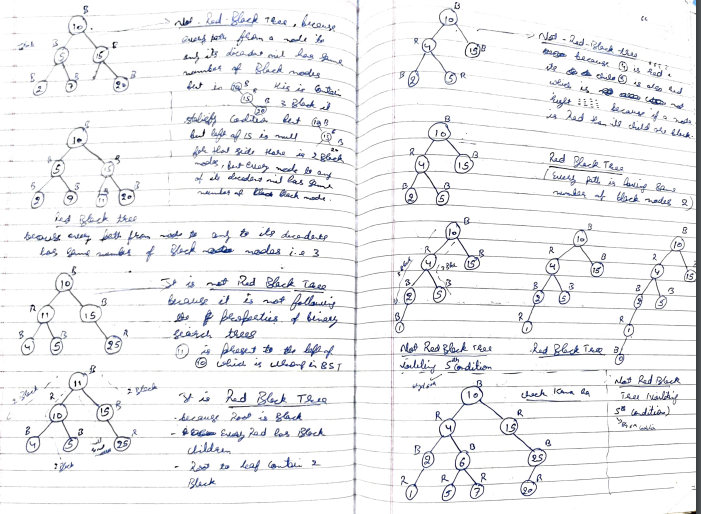 Not - Red-Black Tree, because
every path from a node to
any its decadent nil has same
number of Black nodes
but in
this is contain
3 Black it
satisfy Condition but
but left of 15 is null
for that side there is 2 Black
nodes, but every node to any
of its decadent nil has same
number of black node.
B
10
B
5
B
15
B
2
B
B
20
B
10
B
5
15
B
2
9
11
B
20
Red Black tree
because every path from node to any to its decadents
has same number of Black nodes i.e 3
B
10
R
11
B
15
B
4
B
5
R
25
It is not Red Black Tree
because it is not following
the properties of binary
search trees
11 is present to the left of
10 which is wrong in BST
B
11
2 Black
2 Black
R
10
B
15
B
4
B
5
R
25
2 Black
It is Red Black Tree
- because Root is Black
- Every Red has Black
children
- Root to leaf contain 2
Black
B
10
R
4
15
B
2
R
5
Not - Red-Black tree
because 4 is Red &
its child 5 is also red
which is not
right because if a node
is Red then its child are black.
B
10
R
4
B
15
B
2
B
5
Red Black Tree
(Every path is having same
number of black nodes 2)
B
10
R
4
B
15
B
2
B
5
1
B
10
R
4
B
15
B
2
B
5
R
1
B
10
R
4
B
15
B
2
B
5
R
1
B
Not Red Black tree
5th Condition
Red Black Tree
Not Red Black
Tree
5th Condition)
B
10
check
R
4
R
15
B
2
B
6
B
25
R
1
R
5
R
7
R
20